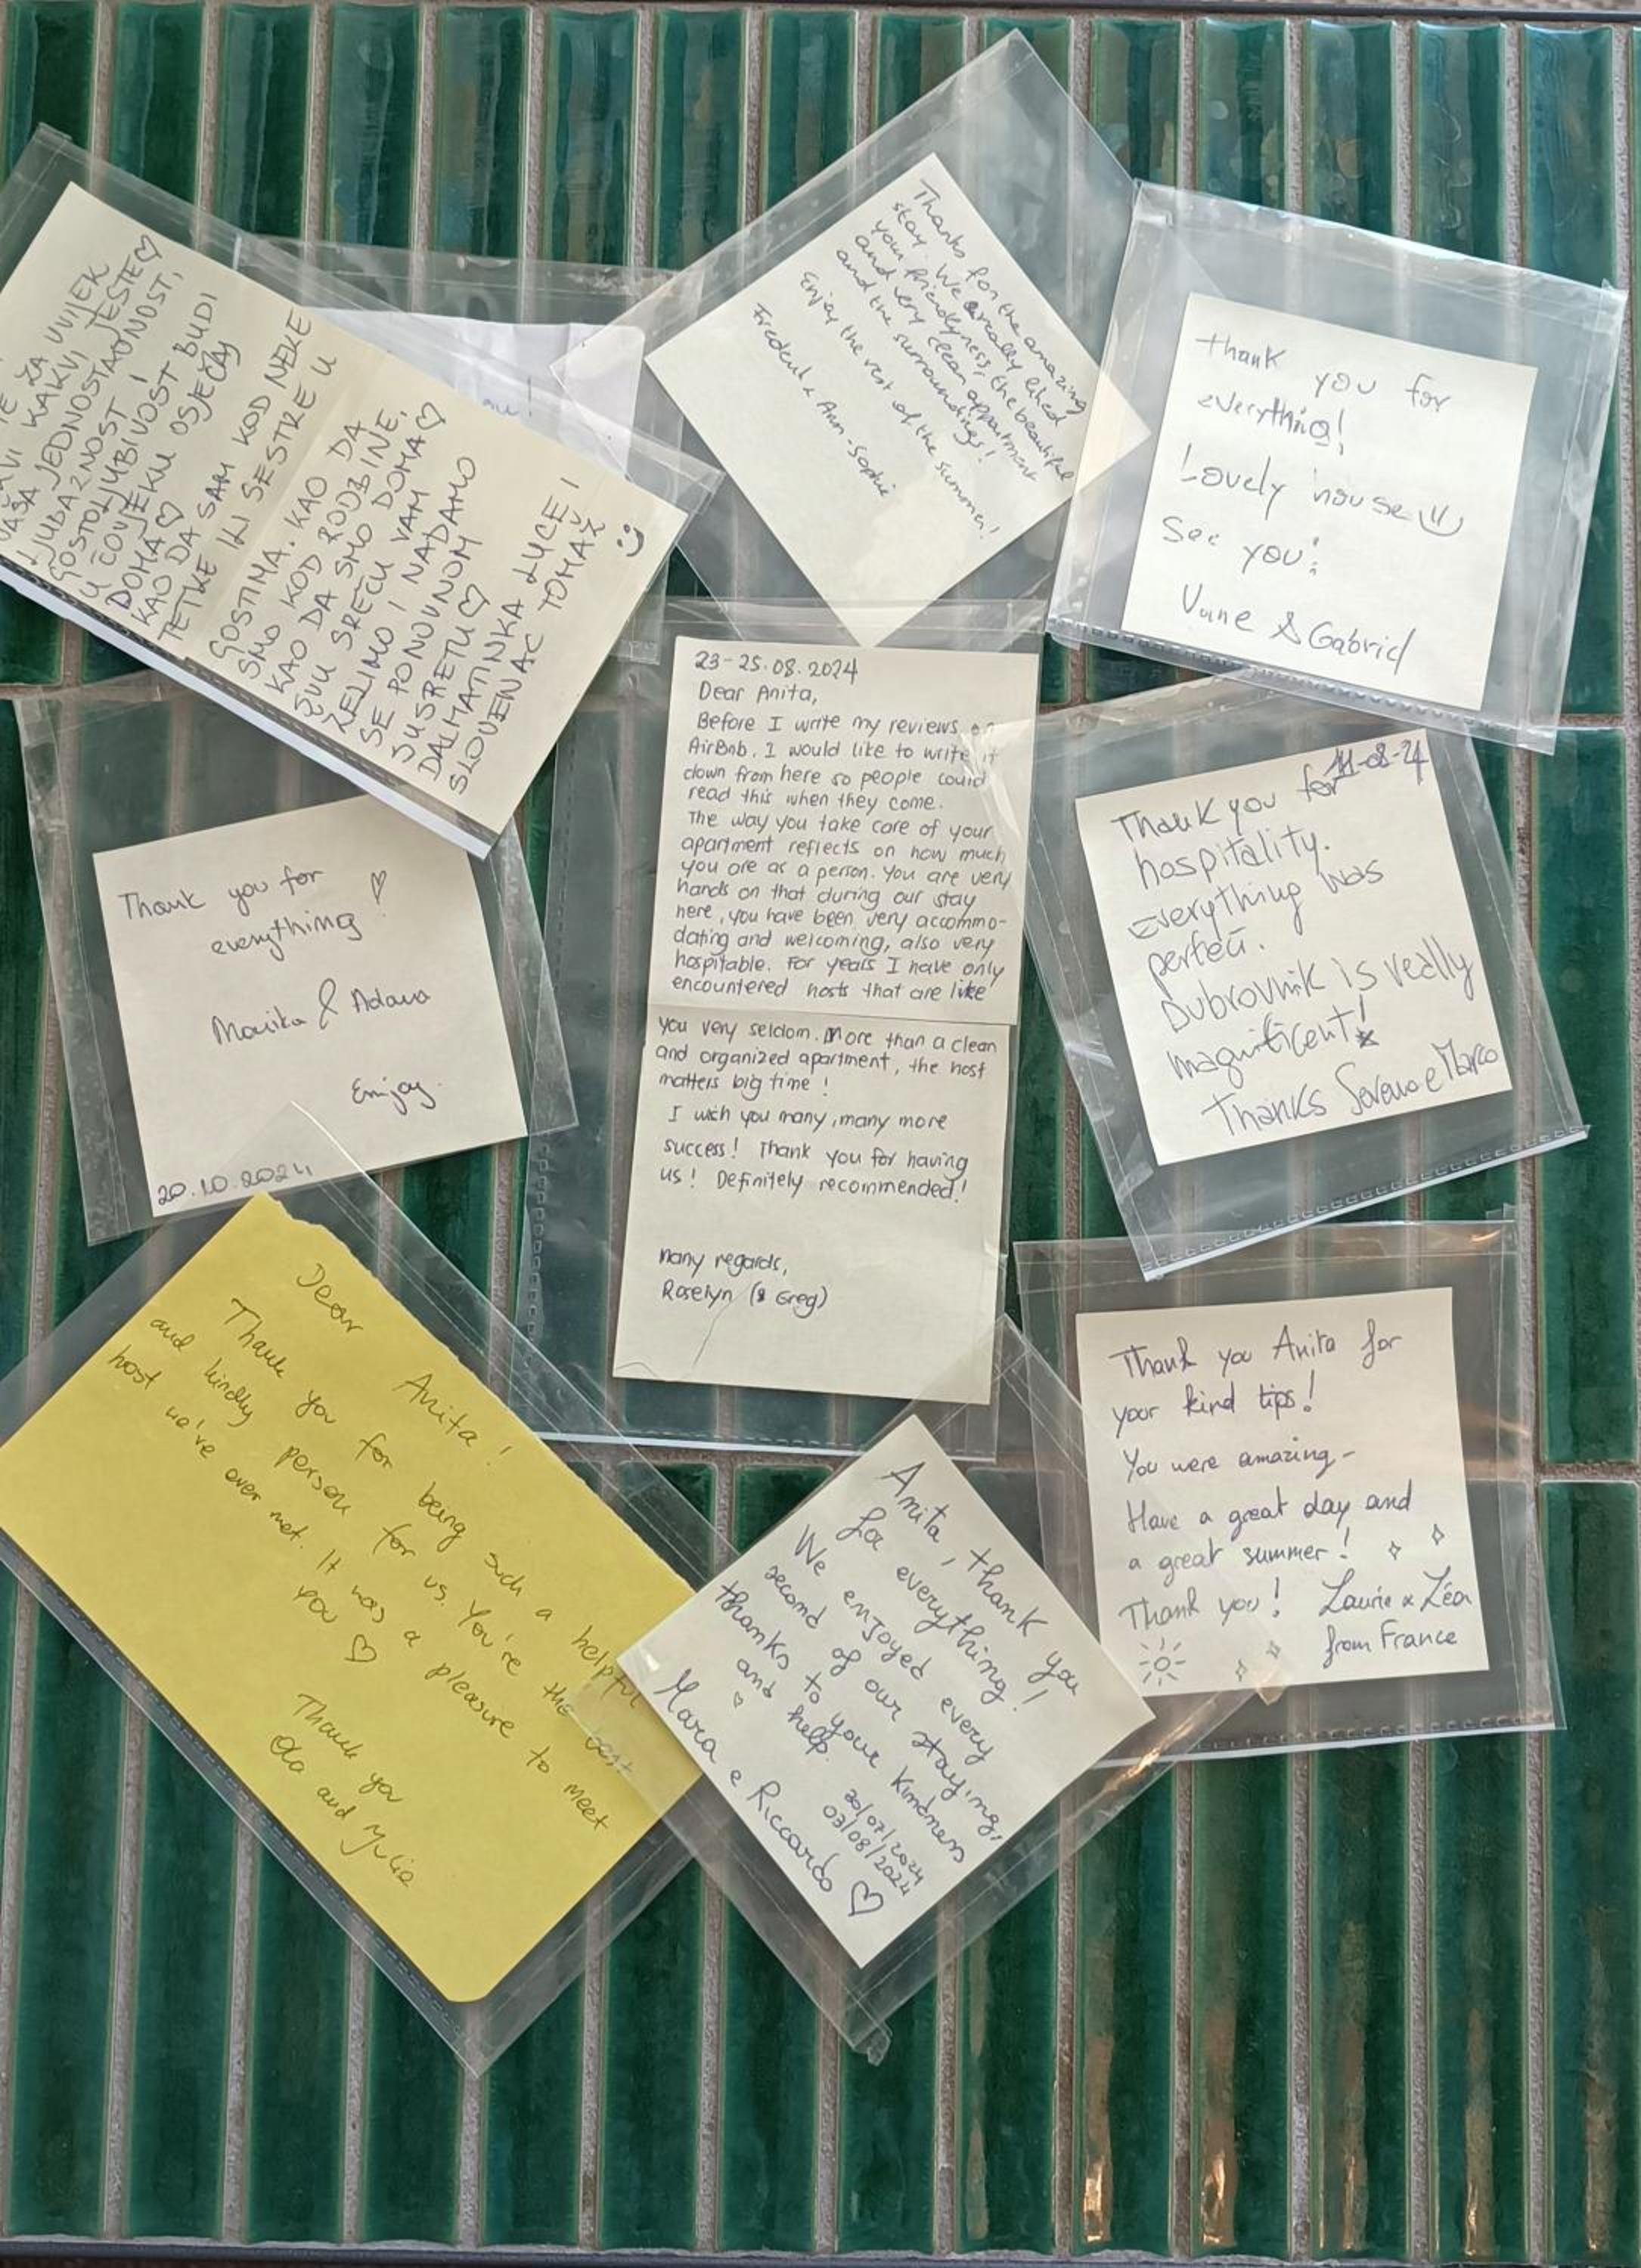 ZA UVIJEK
KAKVI JESTE♡
VAŠA JEDNOSTAVNOST,
LJUBAZNOST I
GOSTOLJUBIVOST BUDI
U ČOVJEKU OSJEČAJ
DOMA♡
KAO DA SAM KOD NEKE
TETKE ILI SESTRE U
GOSTIMA. KAO DA
SMO KOD RODBINE,
KAO DA SMO DOMA♡
SVU SREĆU VAM
ŽELIMO I NADAMO
SE PONOVNOM
SUSRETU♡
DALMATINKA LUCE I
SLOVENAC TOMAŽ
Thanks for the amazing
stay. We really liked
your friendlyness, the beautiful
and very clean appartment
and the surroundings!
Enjoy the rest of the summer!
& Ann-Sophie
Thank you for
everything!
Lovely house
See you:
Vane & Gabriel
Thank you for
everything
& 
Enjoy
20.10.2024
23-25.08.2024
Dear Anita,
Before I write my reviews on
AirBnb, I would like to write it
down from here so people could
read this when they come.
The way you take care of your
apartment reflects on how much
you are as a person. You are very
hands on that during our stay
here, you have been very accommo-
dating and welcoming, also very
hospitable. For years I have only
encountered hosts that are like
you very seldom. More than a clean
and organized apartment, the host
matters big time!
I wish you many, many more
success! Thank you for having
us! Definitely recommended!
Many regards,
Roselyn (& Greg)
11-08-24
Thank you for
hospitality.
Everything was
perfect.
Dubrovnik is really
magnificent!
Thanks Serena e Marco
Dear Anita!
Thank you for being such a helpful
and kindly person for us. You're the best
host we've ever met. It was a pleasure to meet
you ♡
Thank you
and Julia
Anita, thank you
for everything!
We enjoyed every
second of our staying,
thanks to your kindness
and help.
30/07/2024
03/08/2024
Mara e Riccardo ♡
Thank you Anita for
your kind tips!
You were amazing -
Have a great day and
a great summer!
Thank you! Laurie & Léa
from France